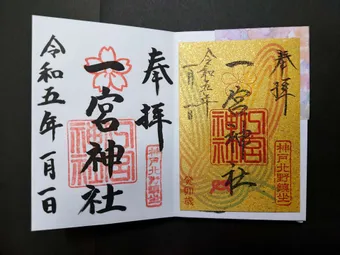 奉拝
一宮神社
令和五年一月一日
神戸北野鎮坐
奉拝
一宮神社
令和五年
一月一日
神戸北野鎮坐
癸卯歳